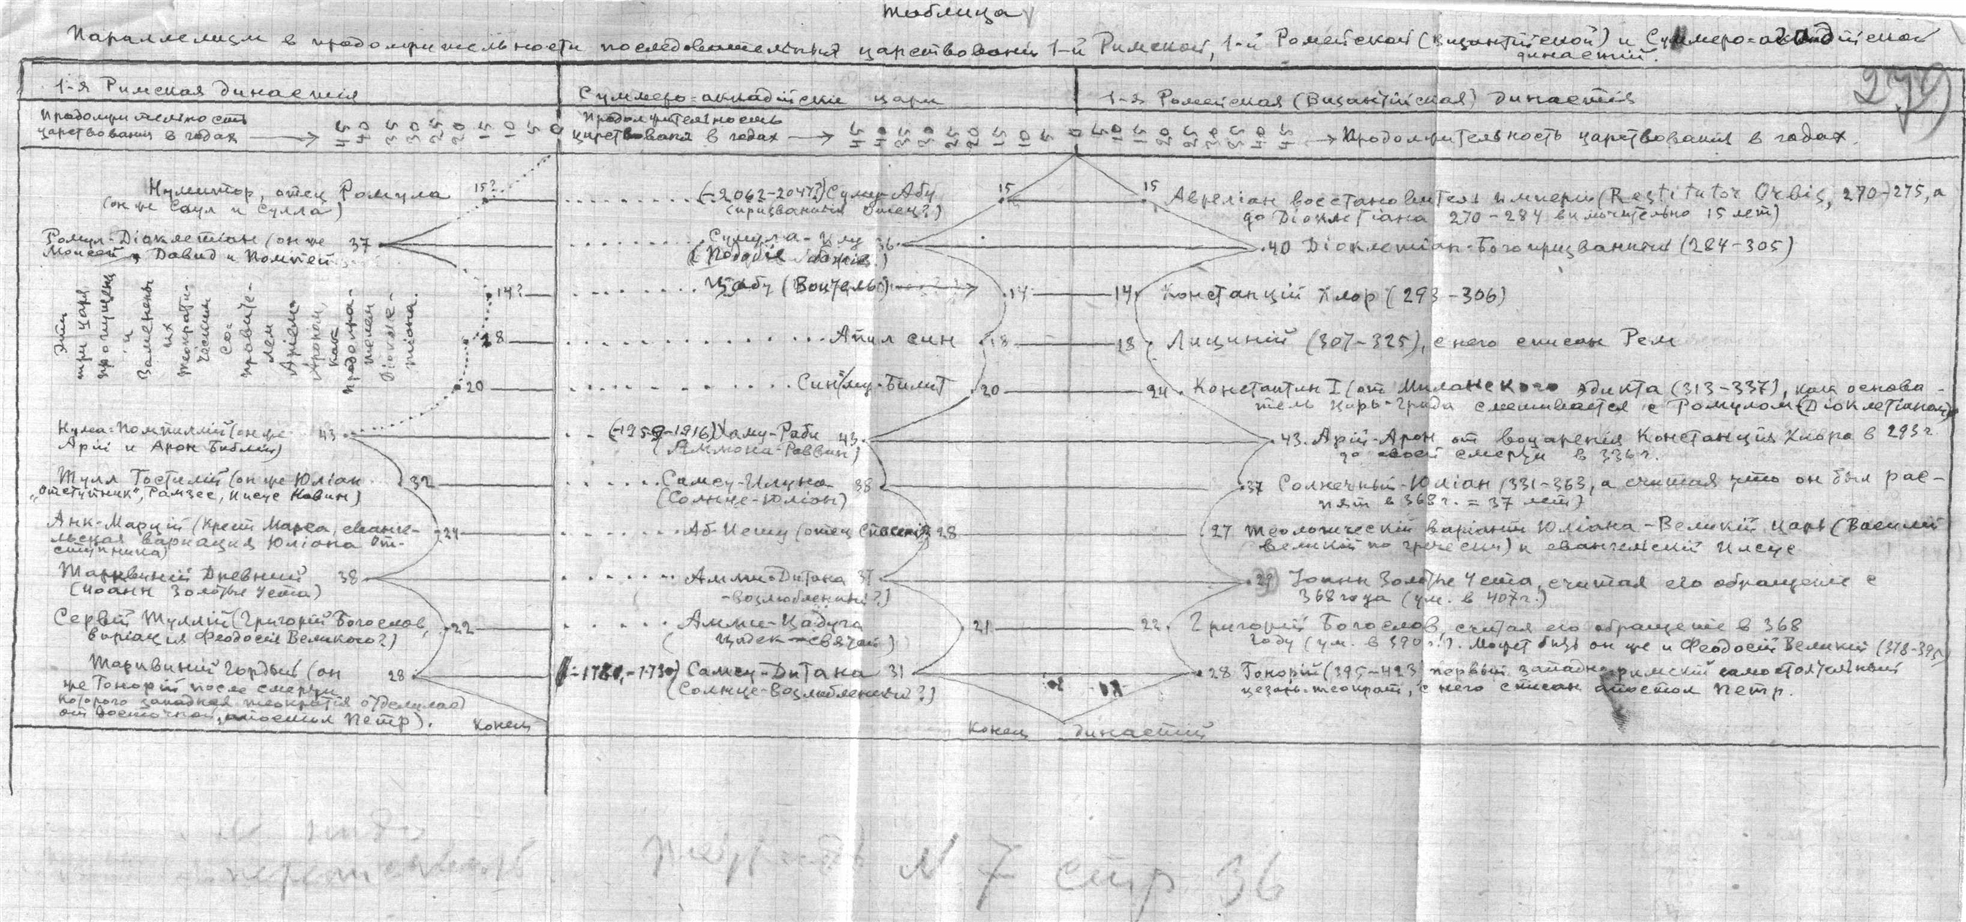 Таблица
Параллелизм в продолжительности последовательных царствований 1-й Римской, 1-й Ромейской (Византийской) и Суммеро-аккадийской
династий.
279)
1-я Римская династія
Суммеро-аккадійские цари
1-я Ромейская (Византійская) династія
Продолжительность
царствования в годах → 45 40 35 30 25 20 15 10 5 0
Продолжительность
царствованя в годах → 45 40 35 30 25 20 15 10 5 0 5 10 15 20 25 30 35 40 45 → Продолжительность царствования в годах.
Нумитор, отец Ромула 15?
(он же Саул и Сулла)
(-2062-2047?) Суму-Абу 15
(призванный отец?)
15 Аврелиан восстановитель империи (Restitutor Orbis, 270-275, а
до Діоклетіана 270-284 включительно 15 лет)
Ромул-Діоклетіан (он же 37
Моисей, Давид и Помпей
Сумула-Илу 36
(Подобіе божіе?)
40 Діоклетіан-Богопризванный (284-305)
Эти три царя пропущены и заменены их теократическим соправителем Арием-Ароном, как продолжателем Діоклетіана.
14?
Цабу (Воитель) 14
14 Констанцій Хлор (293-306)
18
Апил син 18
18 Лициній (307-325), с него списан Рем
20
Син-Му-Билит 20
24 Константин I (от Миланского эдикта (313-337), как основа-
тель Царь-Града смешивается с Ромулом (Діоклетіаном)
Нума-Помпиллій (он же 43
Арій и Арон Библии)
(-1959-1916) Хаму-Раби 43
(Аммона-Раввин)
43. Арій-Арон от воцарения Констанция Хлора в 293 г.
до своей смерти в 336 г.
Тулл Гостилій (он же Юліан 32
"отступник", Рамзес, Иисус Навин)
Самсу-Илуна 38
(Солнце-Юліон)
37 Солнечный-Юліан (331-363, а считая что он был рас-
пят в 368 г. = 37 лет)
Анк-Марцій (Крест Марса, еванге- 24
льская вариация Юліана От-
ступника)
Аб-Иешу (отец Спасения) 28
27 Теологический варіант Юліана-Великій царь (Василій
великий по гречески) и евангельский Иисус
Тарквиній Древний 38
(Иоанн Златые Уста)
Амми-Дитана 37
-возлюбленный?)
39 Іоанн Златые Уста, считая его обращение с
368 года (ум. в 407 г.)
Сервій Туллій (Григорій Богослов, 22
варіація Феодосія Великого?)
Амми-Цадуга 21
(Цадек-святой)
22 Григорий Богослов, считая его обращение в 368
году (ум. в 390 г.)? Может быть он же и Феодосій Великий (378-395)
Тарквиний Гордый (он 28
же Гонорій после смерти
которого западная теократія отделилась
от Восточной, апостол Петр).
-1761,-1730) Самсу-Дитана 31
(Солнце-Возлюбленный?)
28 Гонорій (395-423) первый западно-римский самостоятельный
цезарь-теократ, с него списан апостол Петр.
конец
конец династий
не надо
стр 36